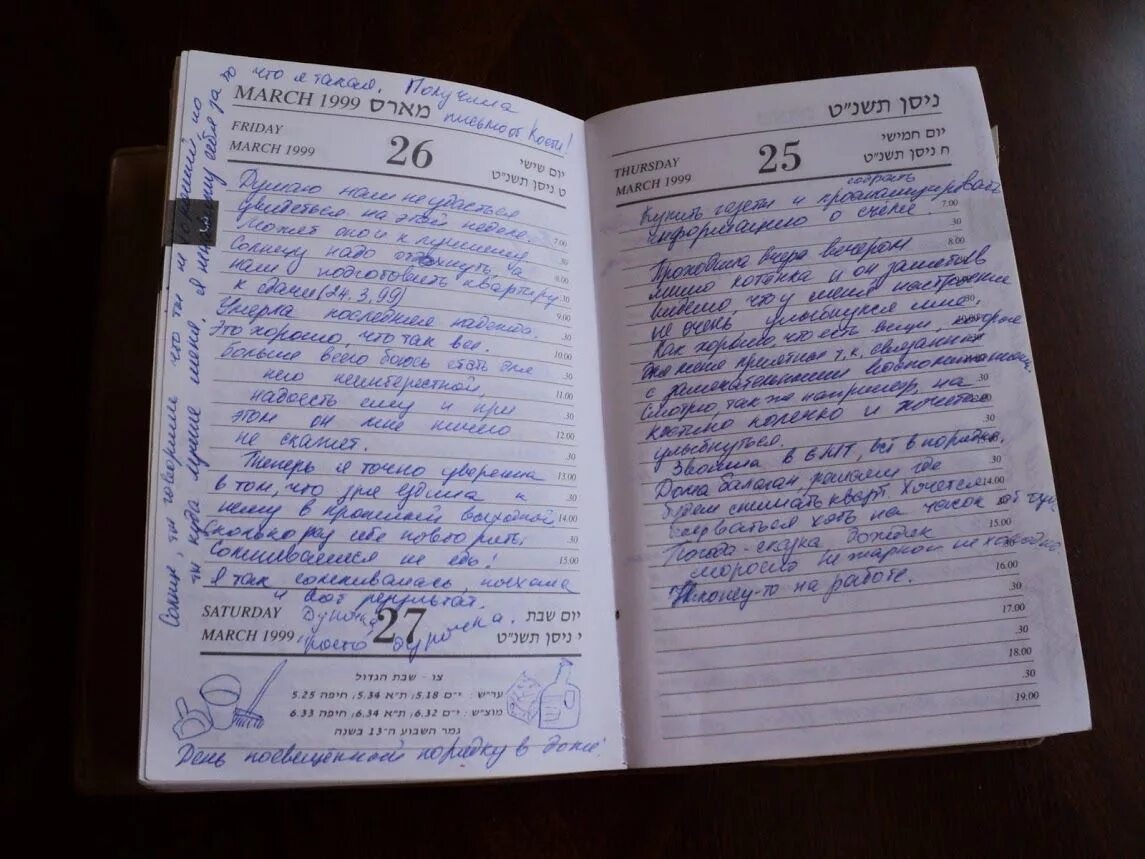 ניסן תשנ״ט
THURSDAY 25 יום חמישי
MARCH 1999 ח ניסן תשנ״ט
собрать
Купить газеты и проанализировать
информацию о съёме. 7.00
.30
8.00
Проходила вчера вечером
мимо котенка и он заметив
видимо, что у меня настроение
не очень улыбнулся мне,
Как хорошо, что есть вещи, которые
для меня приятная т.к. связанны
с замечательными воспоминаниями.
Смотрю, так же например, на
костино колечко и хочется
улыбнуться.
Звонила в БЛП, всё в порядке.
Дома балаган, решаем где
будем снимать кварт. Хочется 14.00
сорваться хоть на часок
Погода - сказка дождик 15.00
моросит не жаркой не холодно
Я наконец-то на работе. 16.00
.30
17.00
.30
18.00
.30
19.00
что я такая. Получила
MARCH 1999 מארס
письмо от Кости!
FRIDAY 26 יום שישי
MARCH 1999 ט ניסן תשנ״ט
Думаю нам не удасться
увидеться на этой неделе. 7.00
Может оно и к лучшему .30
Солнцу надо отдохнуть, да 8.00
нам подготовить квартиру .30
к сдачи (24.3.99) 9.00
Умерла последняя надежда. .30
Это хорошо, что так все. 10.00
больше всего боюсь стать для .30
него неинтересной, 11.00
надоесть ему и при .30
этом он мне ничего 12.00
не скажет. .30
Теперь я точно уверенна 13.00
в том, что зря ездила к .30
нему в прошлый выходной 14.00
сколько раз себе повторять, .30
Сомниваешся не едь! 15.00
Я так сомнивалась, поехала .30
и вот результат.
Дурочка
просто дурочка.
SATURDAY 27 יום שבת
MARCH 1999 י ניסן תשנ״ט
צו - שבת הגדול
ער״ש : י-ם 5.18, ת״א 5.34, חיפה 5.25
מוצ״ש : י-ם 6.32, ת״א 6.34, חיפה 6.33
גמר השבוע ה־13 בשנה
День посвещённой порядку в доме
Солнце, ты говорила что ты не хороший, но
ты куда лучше меня. Я ненавижу себя за то